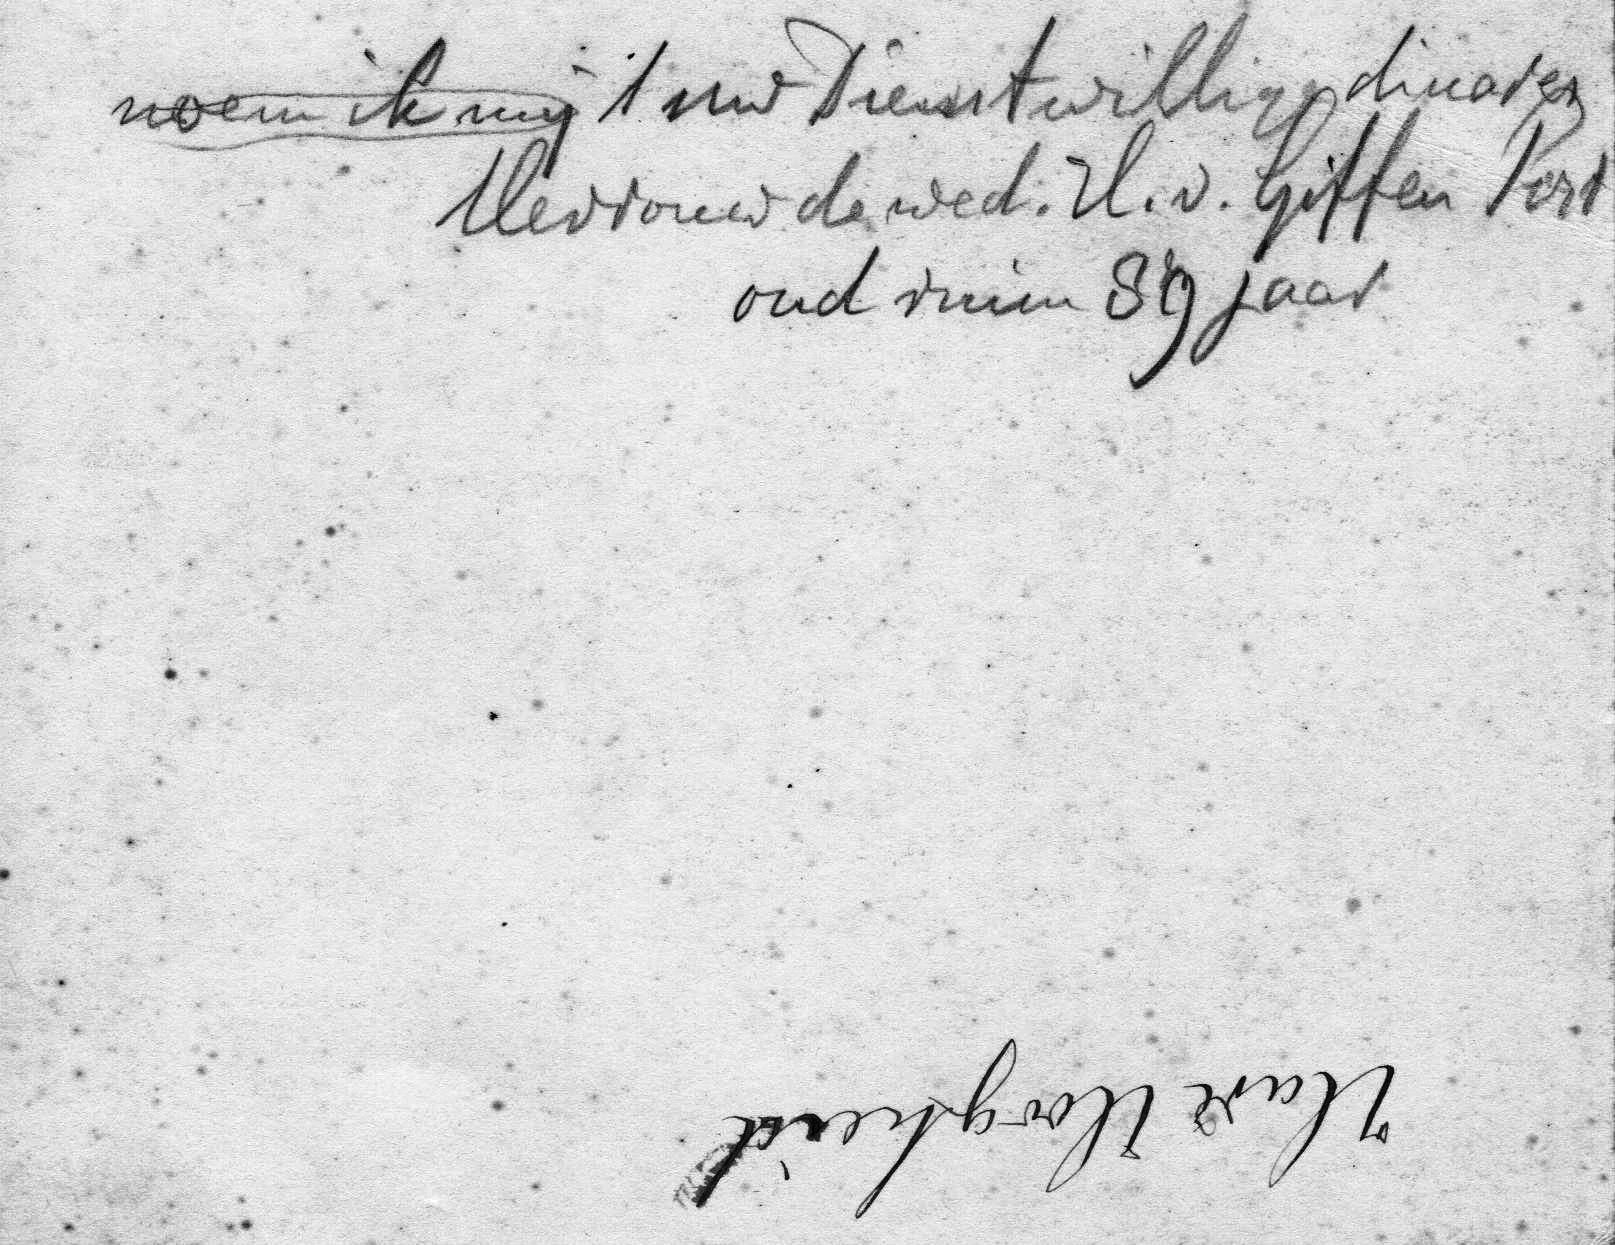 noem ik mij uw Dienstwillige dinares
Mevrouw de wed. H. v. Giffen Post
oud ruim 89 jaar
Hare Hoogheid